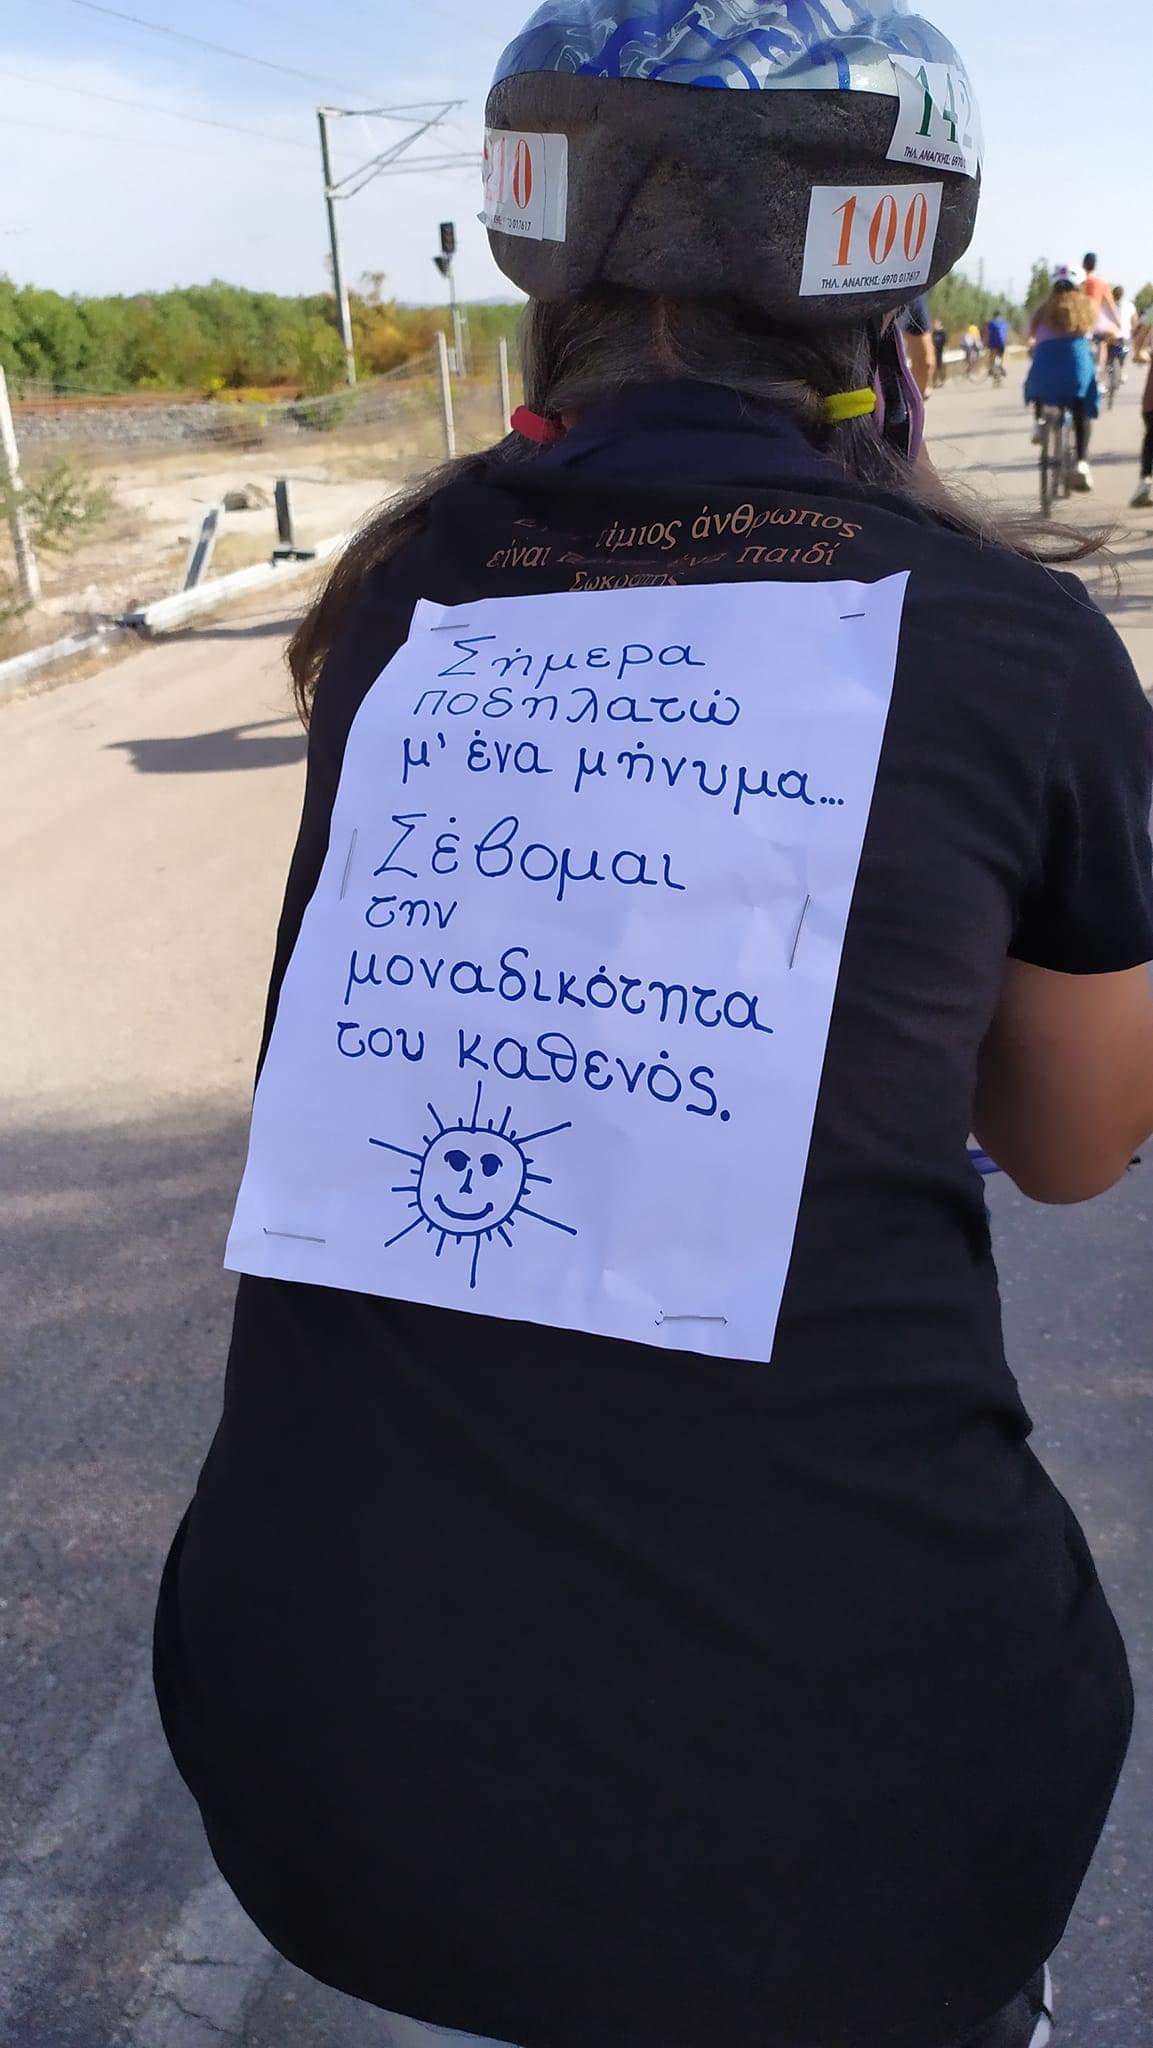 142
ΤΗΛ. ΑΝΑΓΚΗΣ: 6970
210
017617
100
ΤΗΛ. ΑΝΑΓΚΗΣ: 6970 017617
τίμιος άνθρωπος
είναι παιδί
Σωκράτης
Σήμερα
ποδηλατώ
μ' ένα μήνυμα...
Σέβομαι
την
μοναδικότητα
του καθενός.